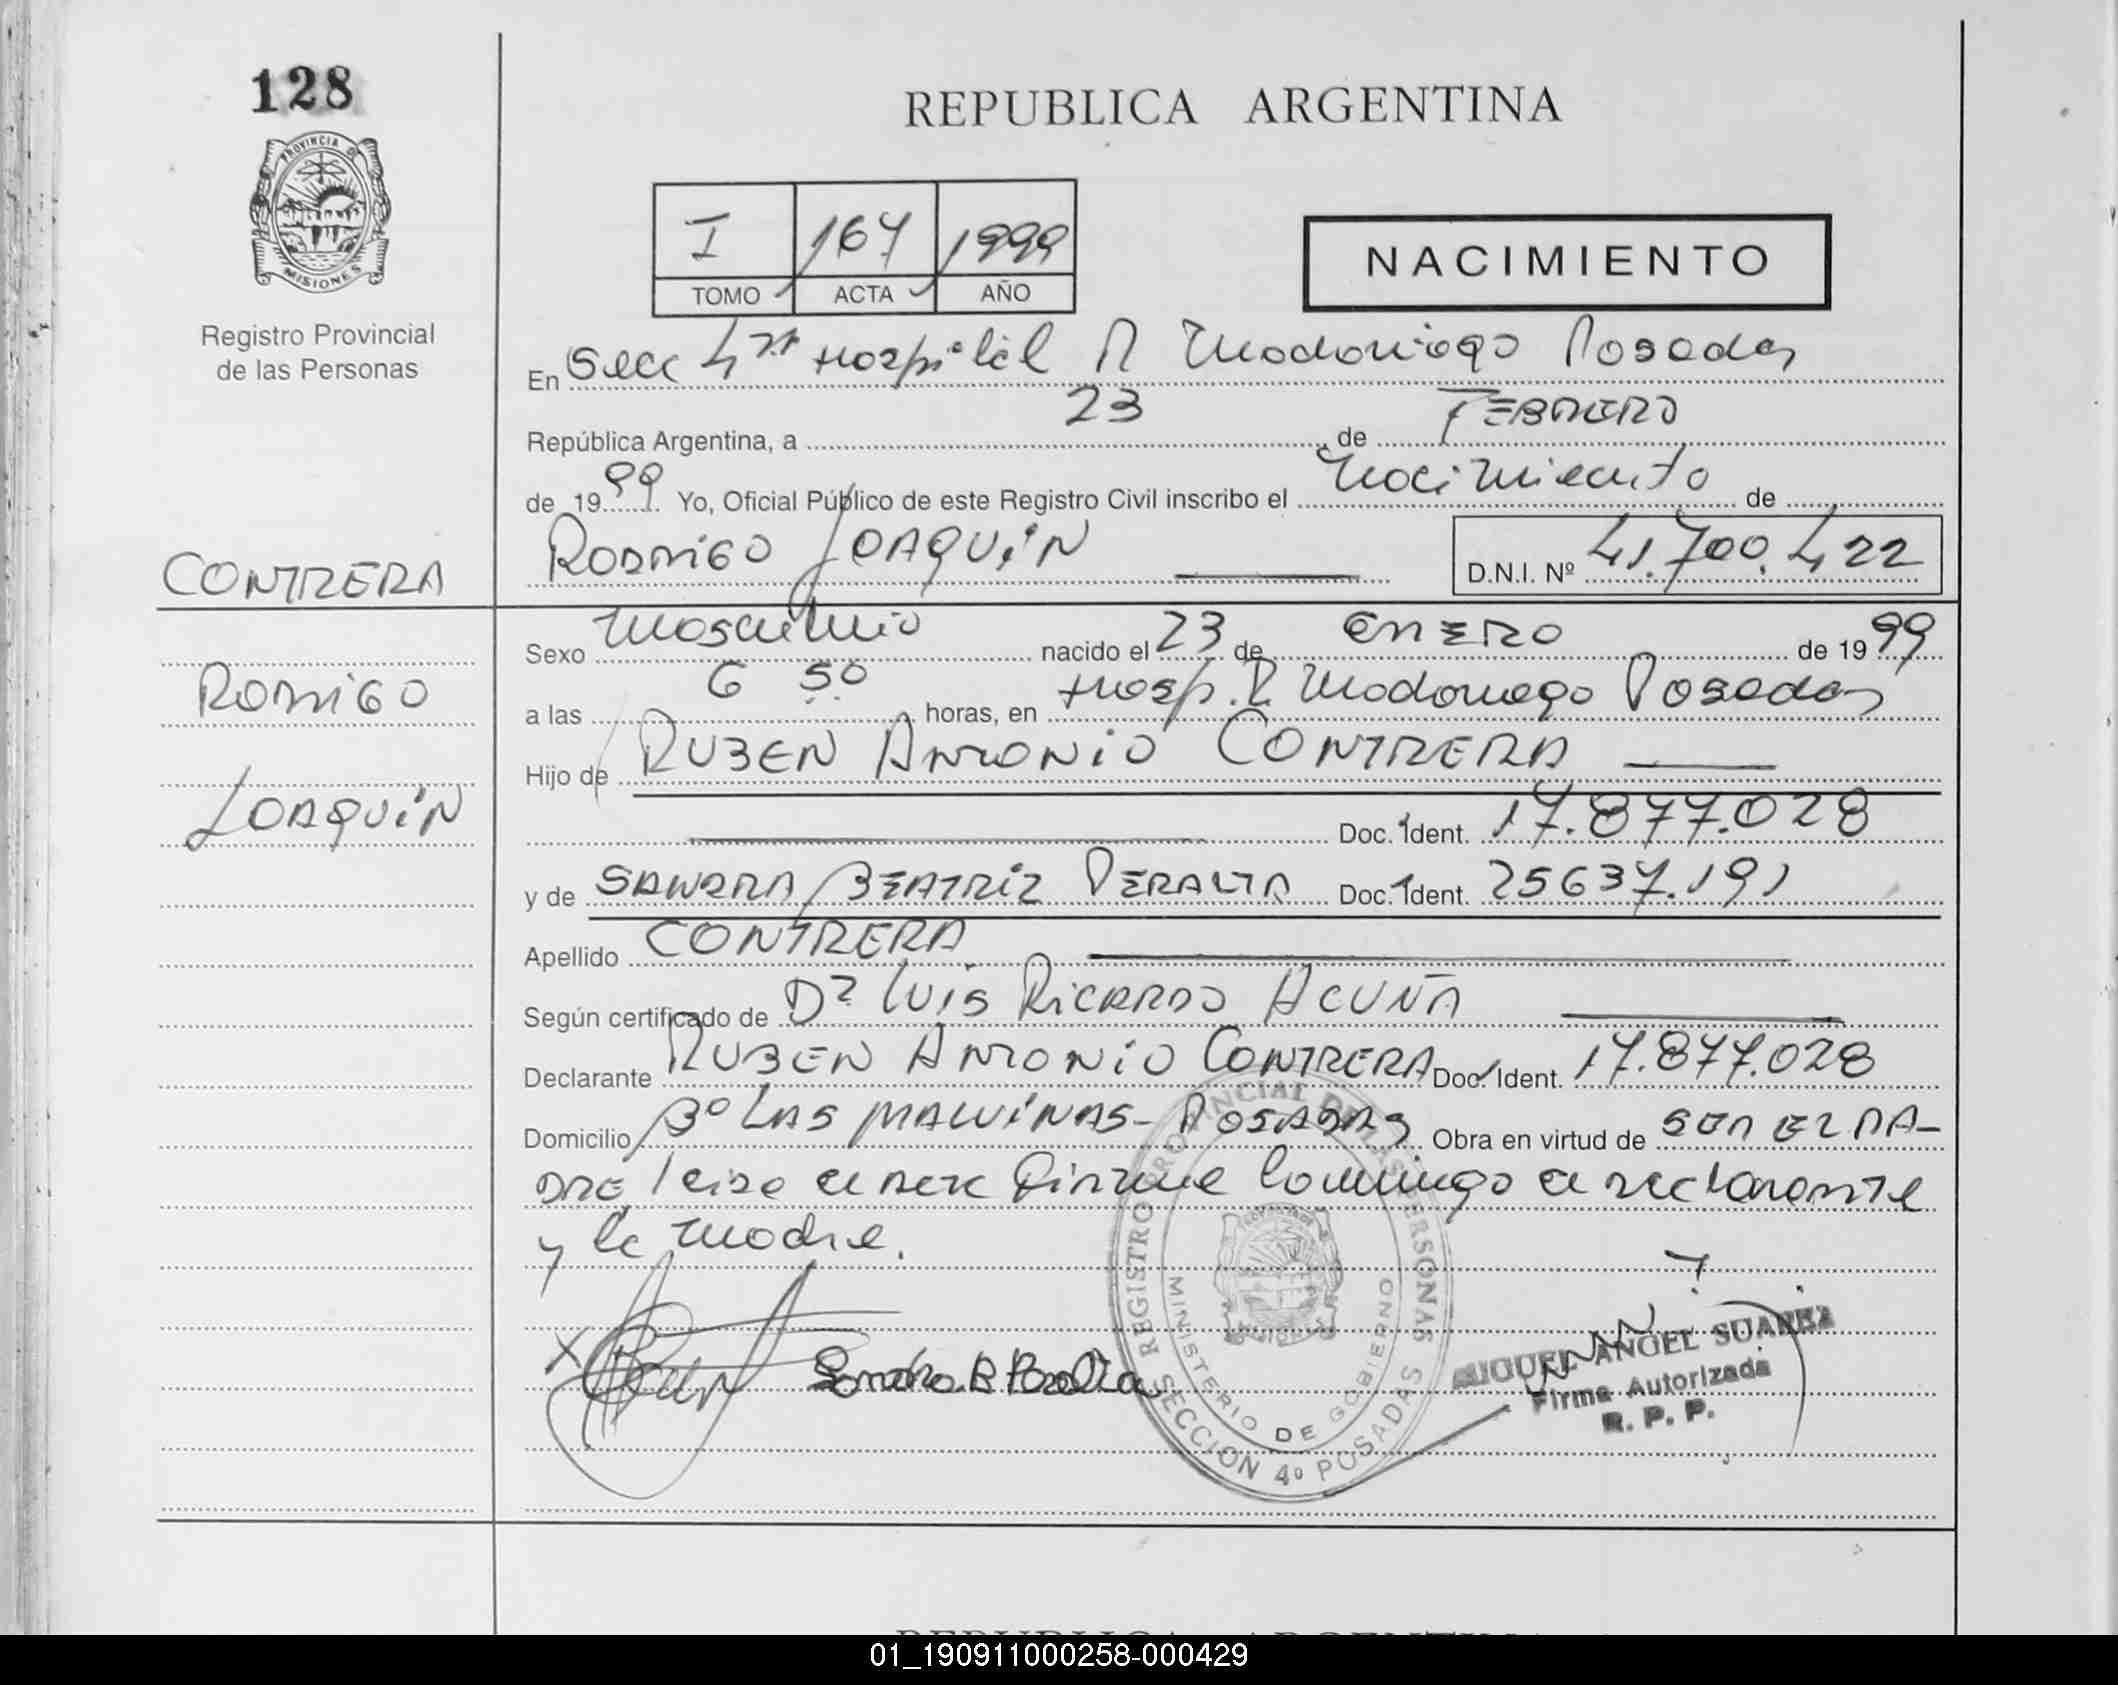 128
PROVINCIA DE
MISIONES
Registro Provincial
de las Personas
CONTRERA
RODRIGO
JOAQUIN
REPUBLICA ARGENTINA
I 167 1999
TOMO ACTA AÑO
NACIMIENTO
En Secc 4ta Hospital R Madariaga Posadas
República Argentina, a 23 de FEBRERO
de 1999 Yo, Oficial Público de este Registro Civil inscribo el nacimiento de
RODRIGO JOAQUIN D.N.I. Nº 41.700.422
Sexo masculino nacido el 23 de ENERO de 1999
a las 6 50 horas, en Hosp. R Madariaga Posadas
Hijo de RUBEN ANTONIO CONTRERA
Doc. Ident. 17.877.028
y de SANDRA BEATRIZ PERALTA Doc. Ident. 25637.191
Apellido CONTRERA
Según certificado de Dr LUIS RICARDO ACUÑA
Declarante RUBEN ANTONIO CONTRERA Doc. Ident. 17.877.028
Domicilio Bº LAS MALVINAS - POSADAS Obra en virtud de SER EL PA-
DRE leida el acta firman conmigo el declarante
y la madre.
Sandra B Peralta
REGISTRO PROVINCIAL DE LAS PERSONAS
MINISTERIO DE GOBIERNO
SECCION 4º POSADAS
MIGUEL ANGEL SUAREZ
Firma Autorizada
R. P. P.
REPUBLICA ARGENTINA
01_190911000258-000429